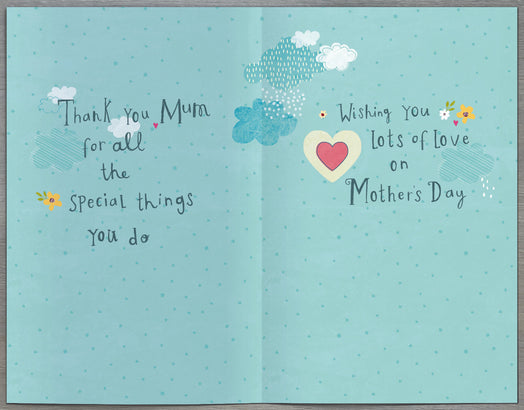 Thank you Mum
for all
the
special things
you do
Wishing you
lots of love
on
Mother's Day